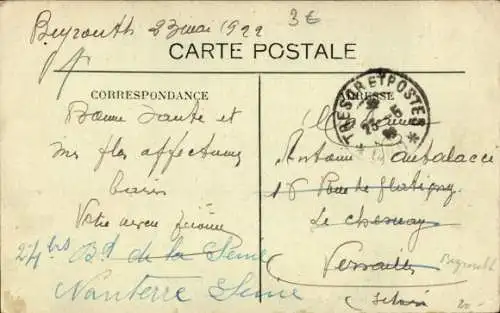 Beyrouth 23 mai 1922
3€
CARTE POSTALE
CORRESPONDANCE
ADRESSE
TRESOR ET POSTES
Bonne Santé et
mes plus affectueux
Votre
Antoine
16 Rue de Glatigny
Le Chesnay
Versailles
24 bis Bd de la Seine
Nanterre Seine
Beyrouth
20-